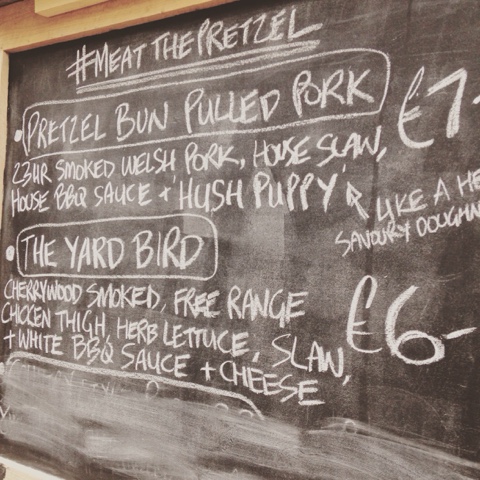 #MEAT THE PRETZEL
PRETZEL BUN PULLED PORK £7-
23HR SMOKED WELSH PORK, HOUSE SLAW,
HOUSE BBQ SAUCE + HUSH PUPPY
LIKE A
SAVOURY
THE YARD BIRD
CHERRYWOOD SMOKED, FREE RANGE
CHICKEN THIGH, HERB LETTUCE, SLAW,
+ WHITE BBQ SAUCE + CHEESE
£6-